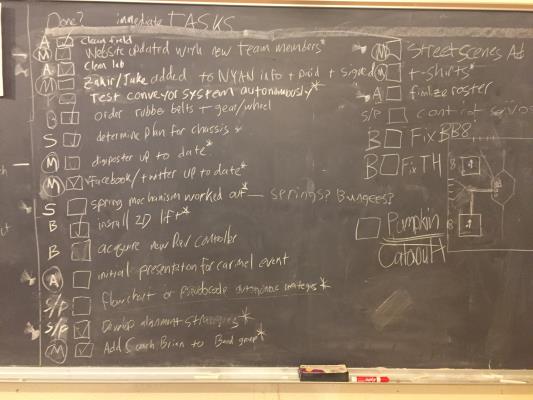 Done? immediate TASKS
A clean field
M Website updated with new team members*
A Clean lab
M Zahir/Jake added to NYAN info + Droid + signed
P Test conveyor system autonomously*
B order rubber belts + gear/wheel
S determine plan for chassis
M digiposter up to date*
M Facebook/twitter up to date*
S spring mechanism worked out* — springs? Bungees?
B install 2D lift*
B acquire new Rev Controller
A initial presentation for carmel event
S/P flowchart or pseudocode autonomous strategies*
S/P Develop alignment strategies*
M Add Coach Brian to Band group*
M Street scenes Ad
M t-shirts*
A finalize roster
S/P control servos
B Fix BB8
B Fix TH
Pumpkin
Catapult